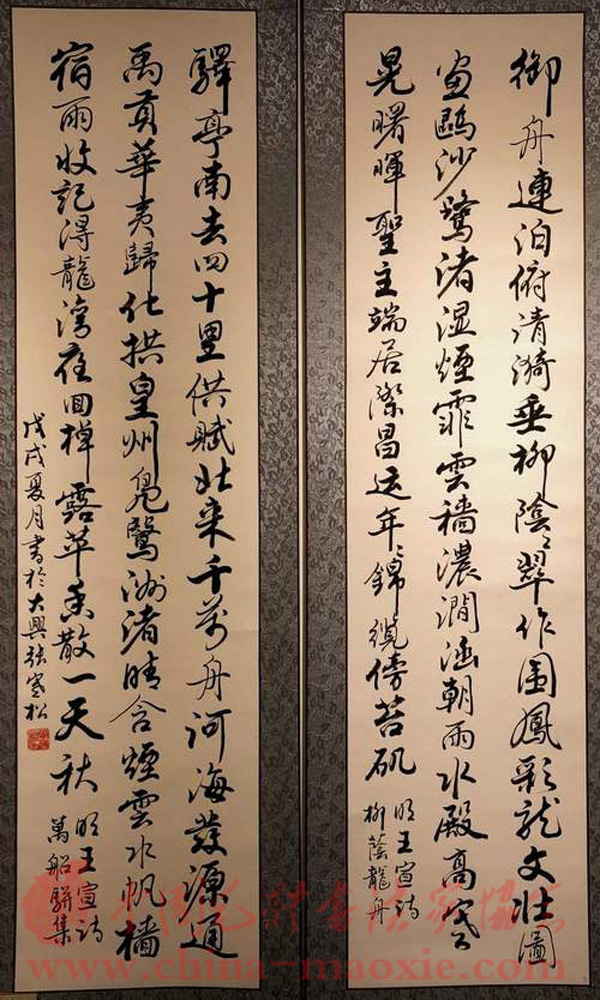 御舟連泊俯清漪垂柳陰〻翠作围鳳彩龍文壮圖
畫鷗沙鷺渚湿煙霏雲濃涵朝雨水殿高寒
晃曙暉聖主端居際昌运年〻錦纜傍苔矶
明王宣詩
柳蔭龍舟
驛亭南去四十里供賦北来千万舟河海發源通
禹貢華夷歸化拱皇州鳧鷖洲渚晴含煙雲水帆檣
宿雨收記得龍灣回棹露苹香散一天秋
明王宣詩
萬船駢集
戊戌夏月書於大興張寒松
www.china-maoxie.com